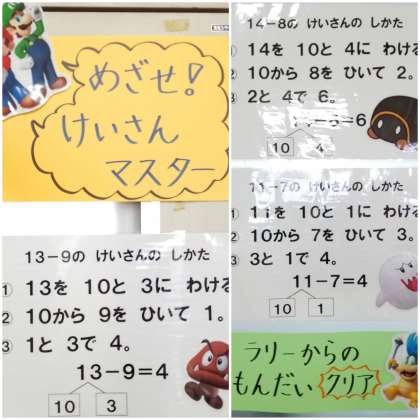 めざせ!
けいさん
マスター
13-9の けいさんの しかた
① 13を 10と 3に わける
② 10から 9を ひいて 1。
③ 1と 3で 4。
13-9=4
10 3
14-8の けいさんの しかた
① 14を 10と 4に わける
② 10から 8を ひいて 2。
③ 2と 4で 6。
14-8=6
10 4
11-7の けいさんの しかた
① 11を 10と 1に わける
② 10から 7を ひいて 3。
③ 3と 1で 4。
11-7=4
10 1
ラリーからの
もんだい クリア